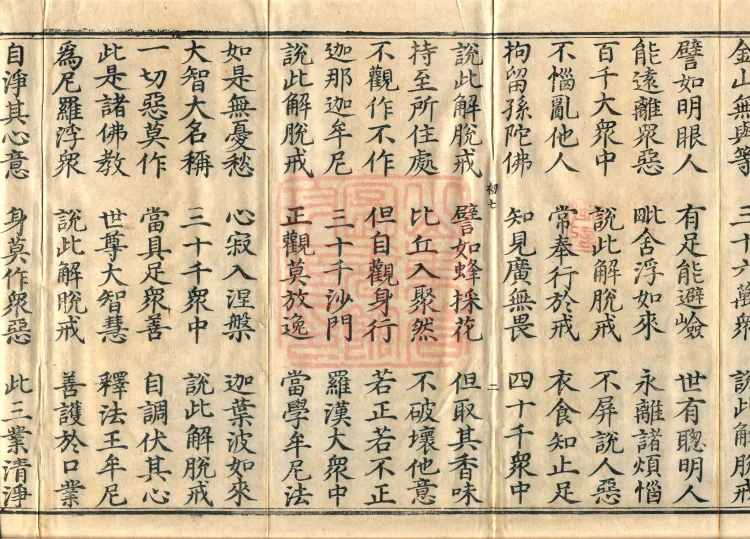 金山無與等 三十六萬衆 說此解脫戒
譬如明眼人 有足能避嶮 世有聰明人
能遠離衆惡 毗舍浮如來 永離諸煩惱
百千大衆中 說此解脫戒 不屏說人惡
不惱亂他人 常奉行於戒 衣食知止足
拘留孫陀佛 知見廣無畏 四十千衆中
初七 二
說此解脫戒 譬如蜂採花 但取其香味
持至所住處 比丘入聚然 不破壞他意
不觀作不作 但自觀身行 若正若不正
迦那迦牟尼 三十千沙門 羅漢大衆中
說此解脫戒 正觀莫放逸 當學牟尼法
如是無憂愁 心寂入涅槃 迦葉波如來
大智大名稱 三十千衆中 說此解脫戒
一切惡莫作 當具足衆善 自調伏其心
此是諸佛教 世尊大智慧 釋法王牟尼
為尼羅浮衆 說此解脫戒 善護於口業
自淨其心意 身莫作衆惡 此三業清淨